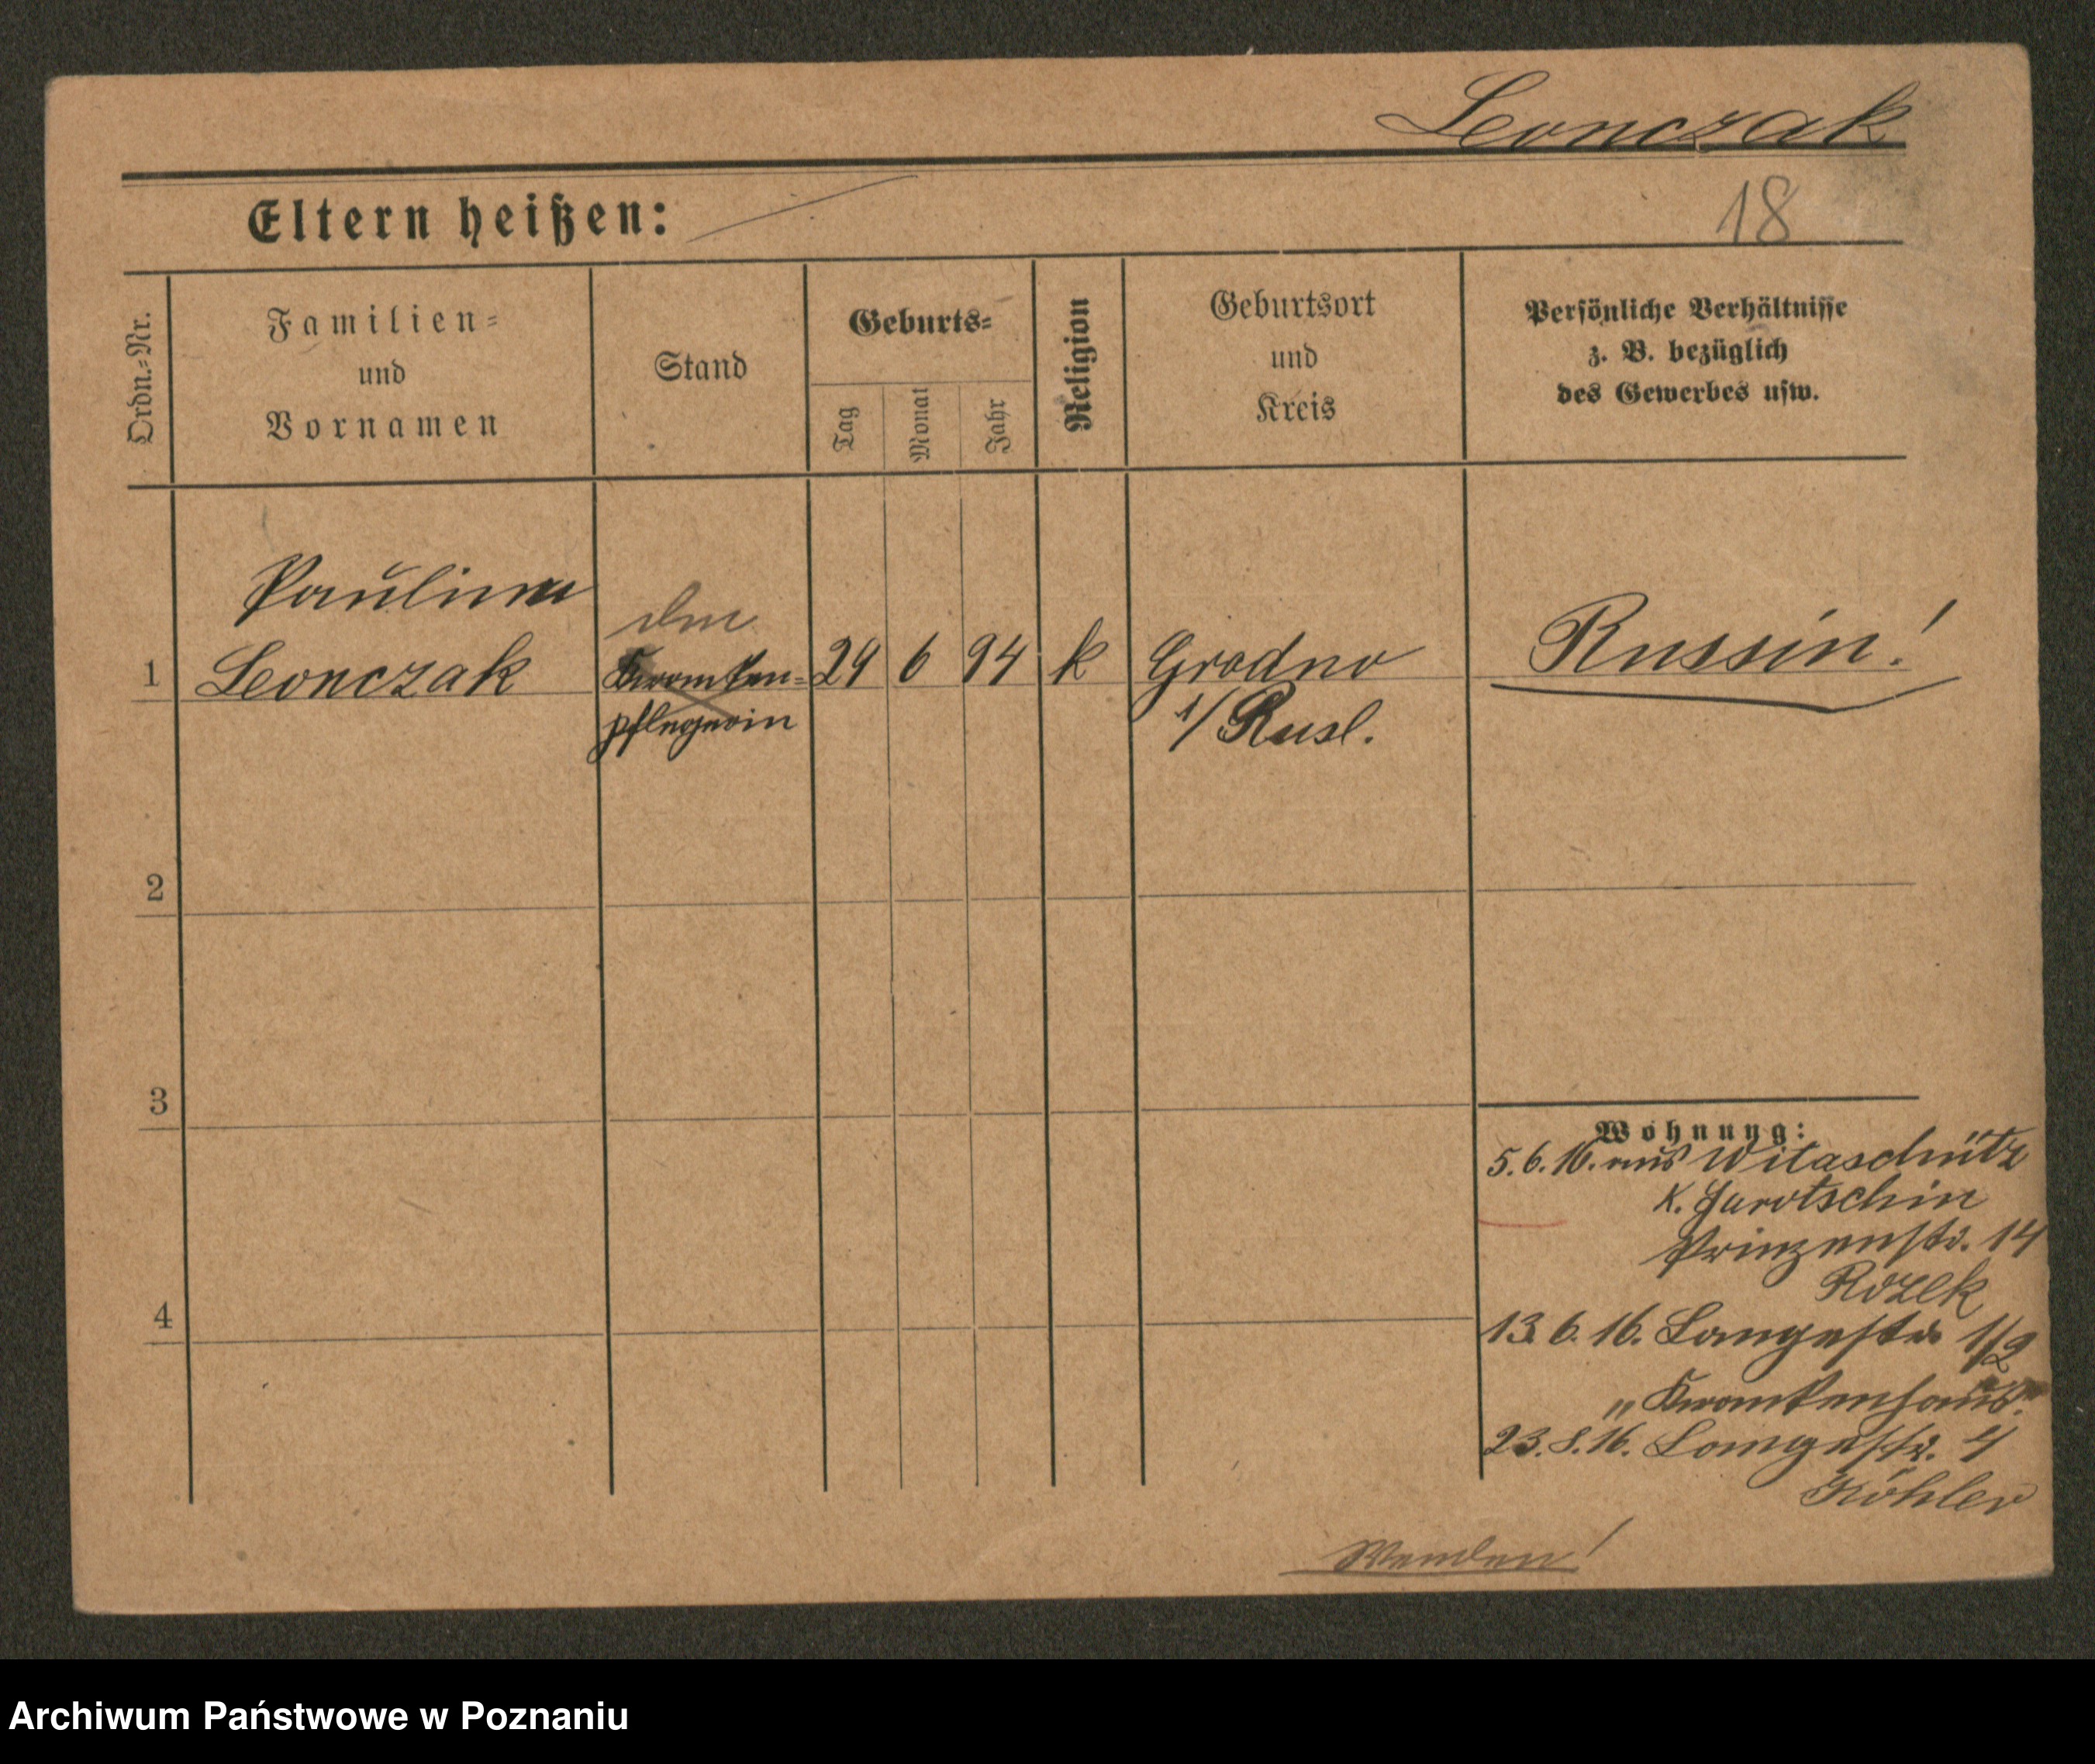 Leonczak
Eltern heißen:
18
Ordn.-Nr.
Familien-
und
Vornamen
Stand
Geburts-
Tag
Monat
Jahr
Religion
Geburtsort
und
Kreis
Persönliche Verhältnisse
z. B. bezüglich
des Gewerbes usw.
1
Paulina
Leonczak
Kranken-
pflegerin
29 6 94 k Grodno
i/Rusl.
Russin!
2
3
4
Wohnung:
5.6.16. aus Witaschütz
K. Jarotschin
Prinzenstr. 14
Rozek
13.6.16. Langestr. 1/2
„ Krankenhaus.
23.8.16. Langestr. 4
Köhler
Wenden!
Archiwum Państwowe w Poznaniu